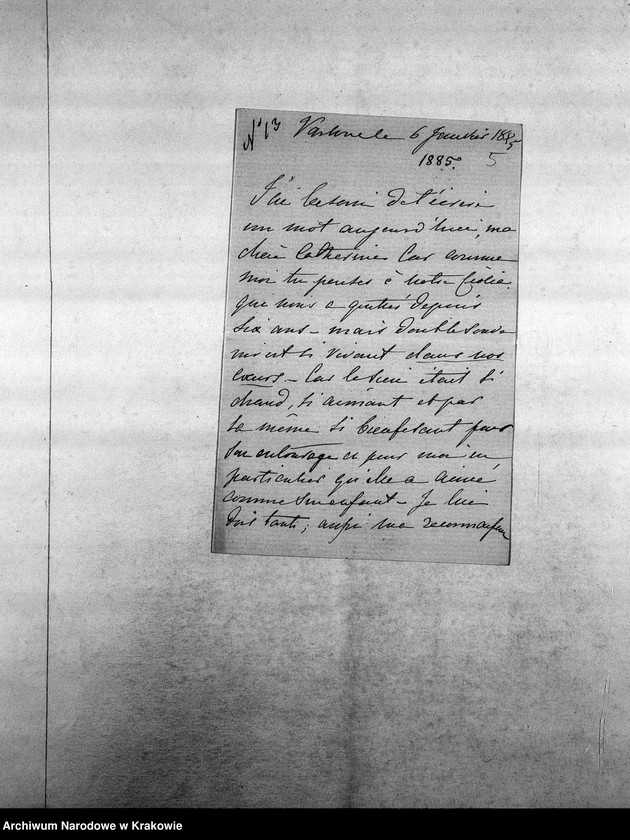 N° 13 Varsovie le 6 Janvier 1885
1885. 5
J'ai besoin de t'écrire
un mot aujourd'hui, ma
chère Catherine Car comme
moi tu penses à notre
qui nous a quittés depuis
six ans – mais dont le souve
nir est si vivant dans nos
cœurs – Car le sien était si
chaud, si aimant et par
là même si bienfaisant pour
son entourage et pour moi en
particulier qu'elle a aimé
comme son enfant – Je lui
dois tant; aussi ma reconnaissan
Archiwum Narodowe w Krakowie